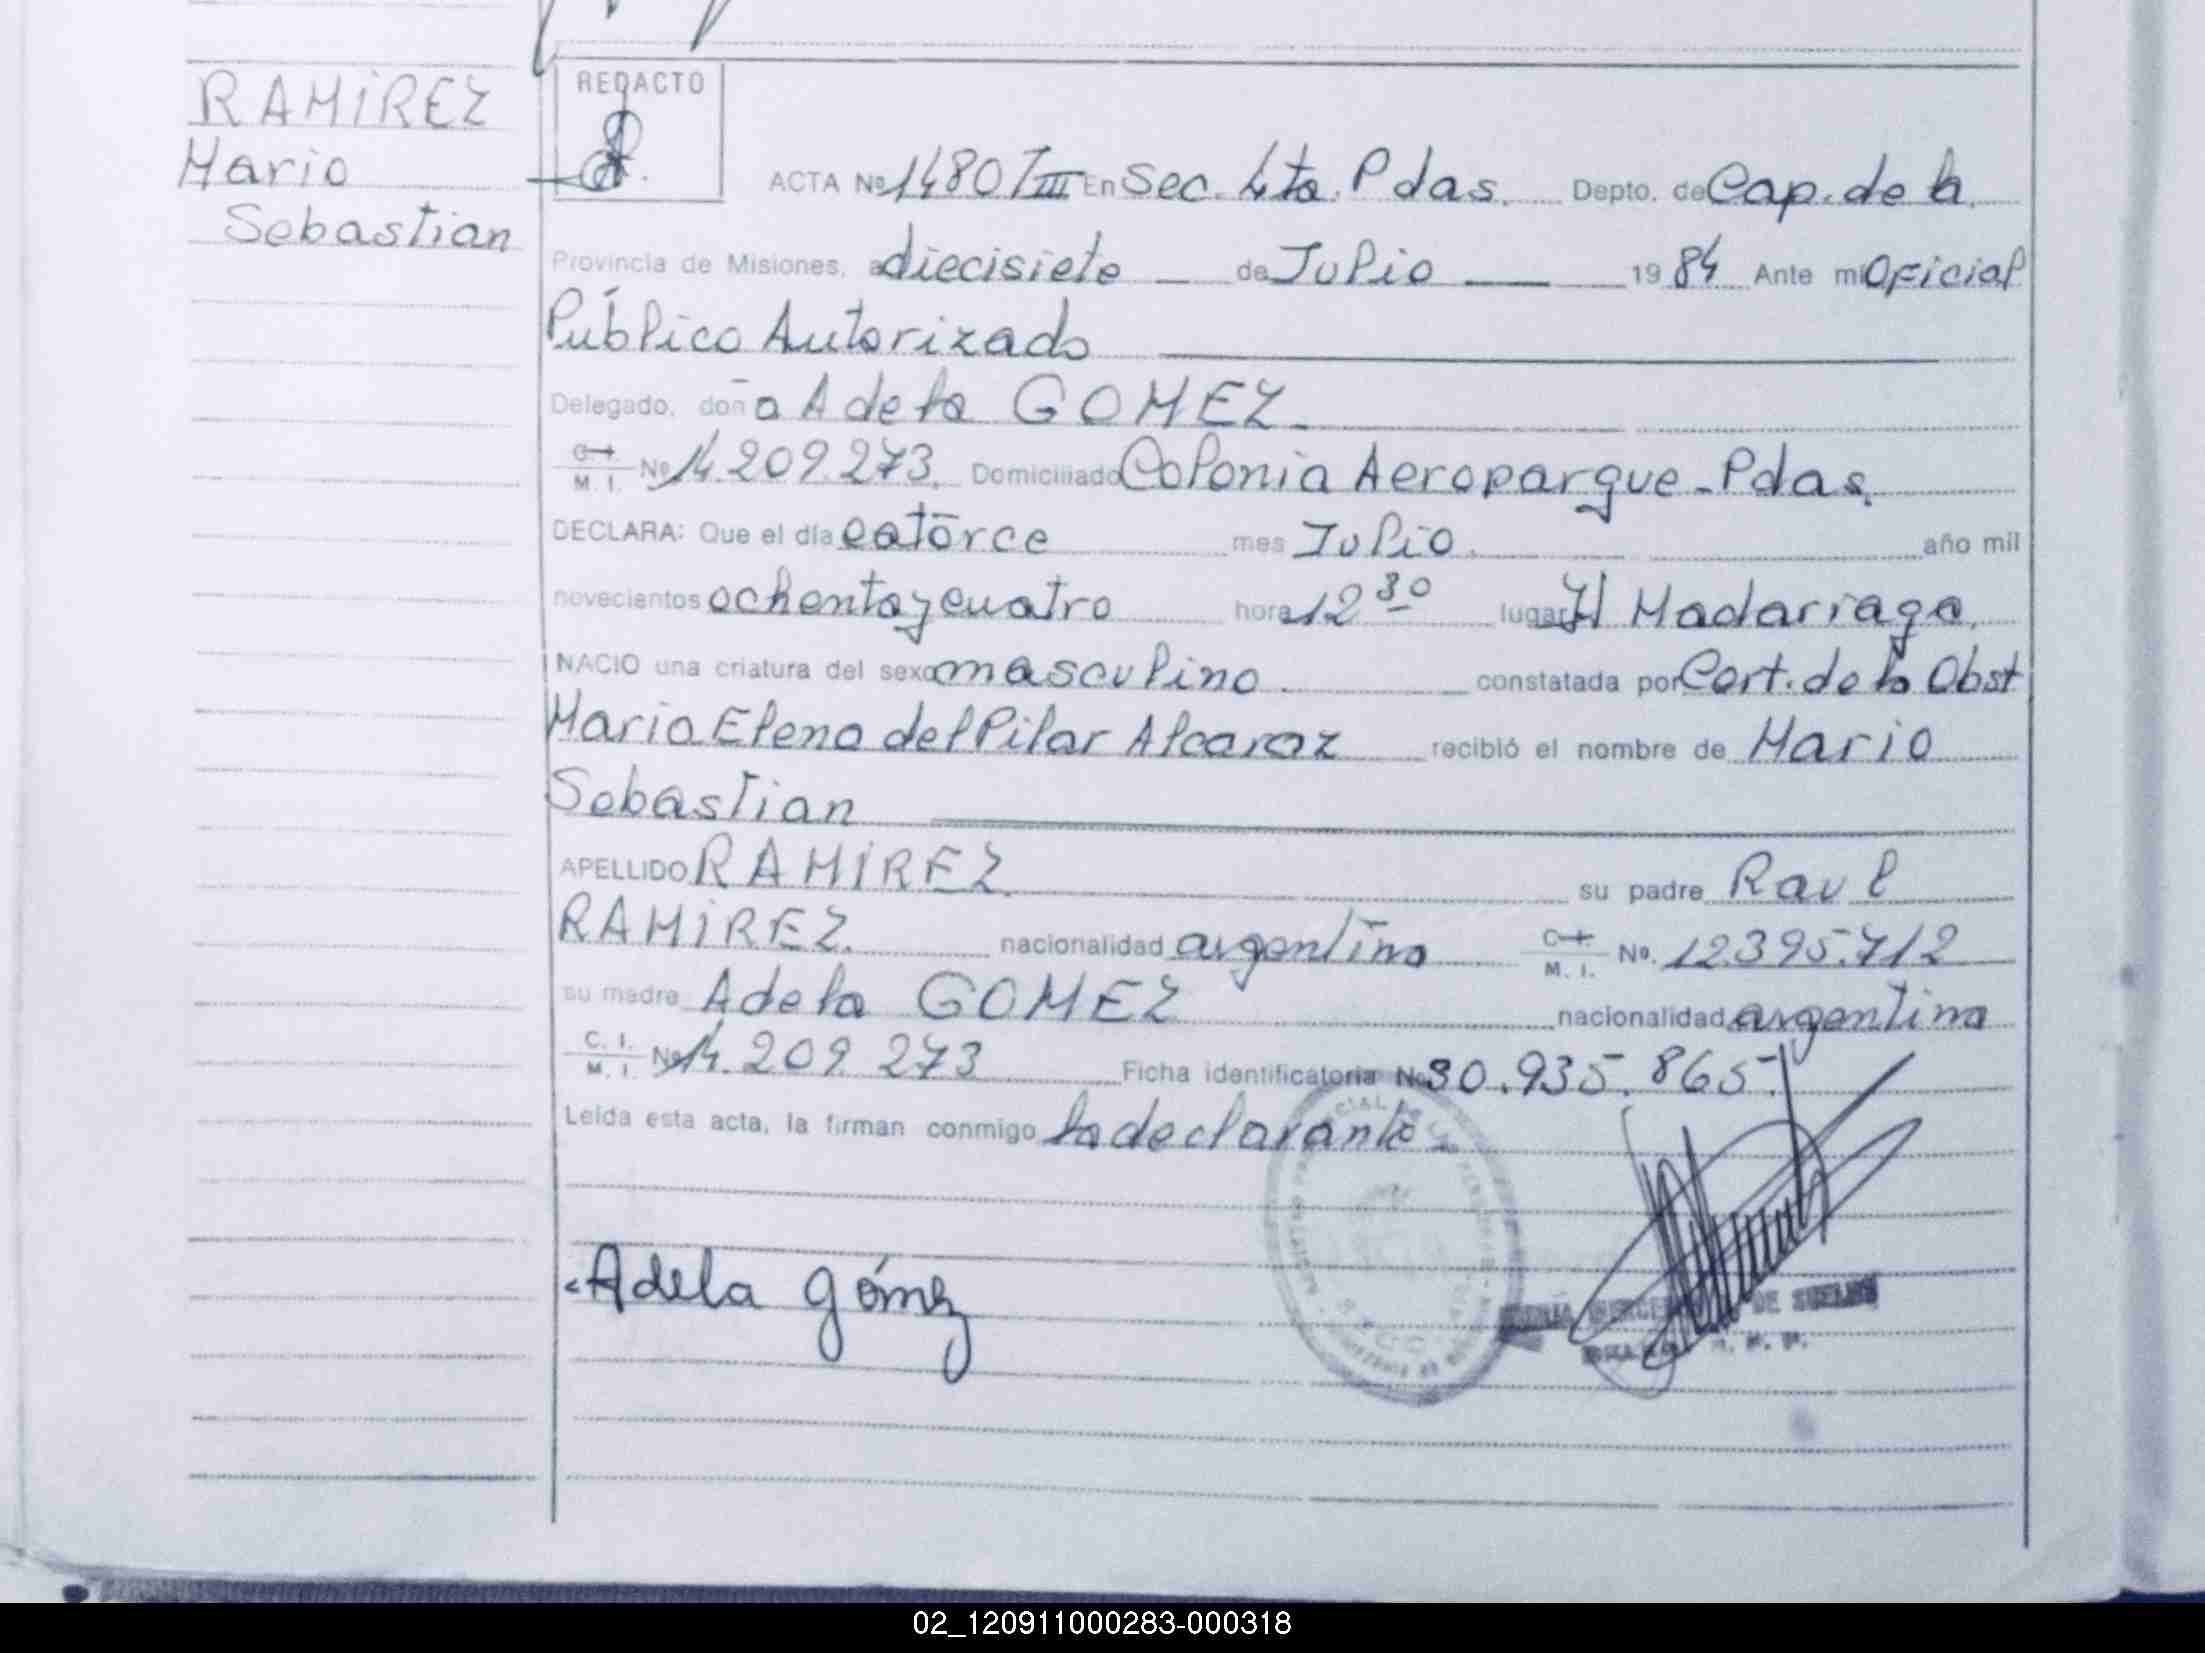 RAMÍREZ
Mario
Sebastian
REDACTO
ACTA Nº 1480 TIII En Sec. 4ta. Pdas. Depto. de Cap. de la
Provincia de Misiones, a diecisiete de Julio 1984 Ante mi Oficial
Público Autorizado
Delegado, doña Adela GOMEZ
C.I. M.I. Nº 14.209.273. Domiciliado Colonia Aeroparque - Pdas.
DECLARA: Que el día catorce mes Julio. año mil
novecientos ochenta y cuatro hora 12 30 lugar H Madariaga.
NACIO una criatura del sexo masculino. constatada por Cert. de la Obst
Maria Elena del Pilar Alcaraz recibió el nombre de Mario
Sebastian
APELLIDO RAMÍREZ. su padre Raul
RAMÍREZ. nacionalidad argentino C.I. M.I. Nº. 12.395.712
su madre Adela GOMEZ nacionalidad argentina
C. I. M. I. Nº 14.209.273 Ficha identificatoria Nº 30.935.865.
Leída esta acta, la firman conmigo la declarante
Adela Gómez
DE SUELDO
02_120911000283-000318